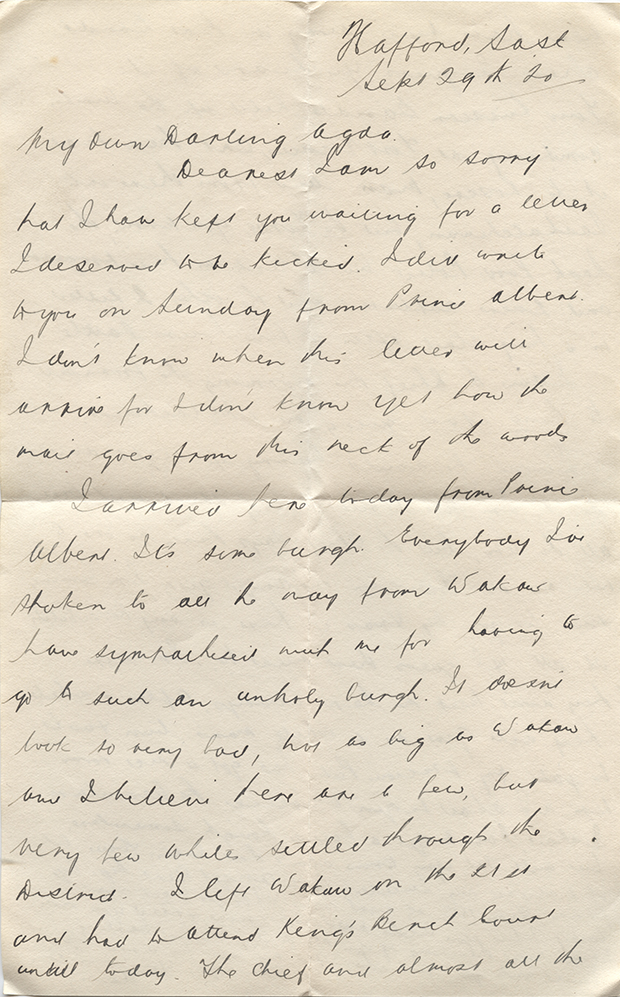 Hafford, Sask
Sept 29th 20
My Own Darling Agda.
Dearest I am so sorry
that I have kept you waiting for a letter
I deserved to be kicked. I did write
to you on Sunday from Prince Albert.
I don't know when this letter will
arrive for I don't know yet how the
mail goes from this neck of the woods
I arrived here today from Prince
Albert. It's some burgh. Everybody I've
spoken to all the way from Wakaw
have sympathised with me for having to
go to such an unholy burgh. It doesn't
look so very bad, not as big as Wakaw
and I believe there are a few, but
very few whites settled through the
District. I left Wakaw on the 21st
and had to attend King's Bench Court
untill today. The Chief and almost all the